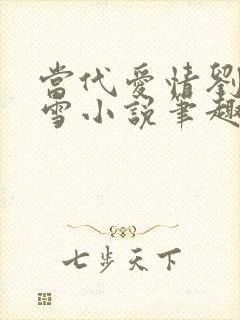 當代愛情劉
雪小說筆趣
七步天下